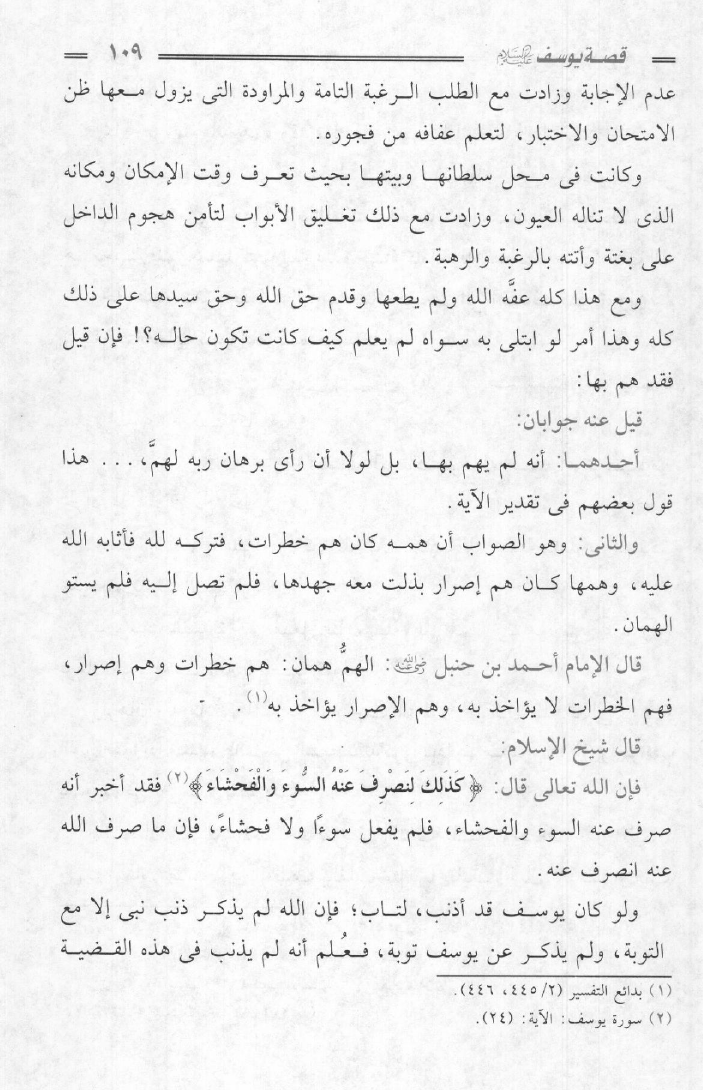 قصة يوسف عليه السلام ١٠٩
عدم الإجابة وزادت مع الطلب الرغبة التامة والمراودة التى يزول معها ظن
الامتحان والاختبار، لتعلم عفافه من فجوره.
وكانت فى محل سلطانها وبيتها بحيث تعرف وقت الإمكان ومكانه
الذى لا تناله العيون، وزادت مع ذلك تغليق الأبواب لتأمن هجوم الداخل
على بغتة وأتته بالرغبة والرهبة.
ومع هذا كله عفَّه الله ولم يطعها وقدم حق الله وحق سيدها على ذلك
كله وهذا أمر لو ابتلى به سواه لم يعلم كيف كانت تكون حاله؟! فإن قيل
فقد هم بها:
قيل عنه جوابان:
أحدهما: أنه لم يهم بها، بل لولا أن رأى برهان ربه لهمَّ، ... هذا
قول بعضهم فى تقدير الآية.
والثانى: وهو الصواب أن همه كان هم خطرات، فتركه لله فأثابه الله
عليه، وهمها كان هم إصرار بذلت معه جهدها، فلم تصل إليه فلم يستو
الهمان.
قال الإمام أحمد بن حنبل رضي الله عنه: الهمُّ همان: هم خطرات وهم إصرار،
فهم الخطرات لا يؤاخذ به، وهم الإصرار يؤاخذ به(١).
قال شيخ الإسلام:
فإن الله تعالى قال: ﴿كَذَلِكَ لِنَصْرِفَ عَنْهُ السُّوءَ وَالْفَحْشَاءَ﴾(٢) فقد أخبر أنه
صرف عنه السوء والفحشاء، فلم يفعل سوءًا ولا فحشاءً، فإن ما صرف الله
عنه انصرف عنه.
ولو كان يوسف قد أذنب، لتاب؛ فإن الله لم يذكر ذنب نبى إلا مع
التوبة، ولم يذكر عن يوسف توبة، فعُلم أنه لم يذنب فى هذه القضية
(١) بدائع التفسير (٢/ ٤٤٥، ٤٤٦).
(٢) سورة يوسف: الآية: (٢٤).